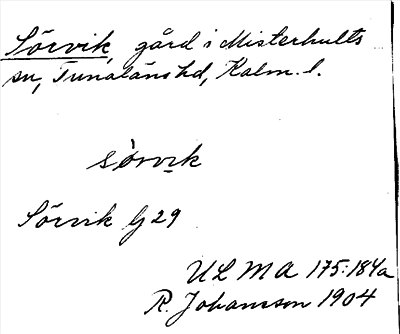 Sörvik, gård i Misterhults
sn, Tunaläns hd, Kalm. l.
sòrvi̲k
Sörvik Lj 29
ULMA 175:184a
R. Johansson 1904